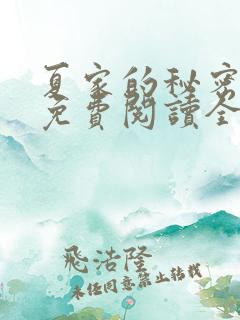 夏家的秘密
免費閱讀全
飛浩隆
未经同意禁止转载